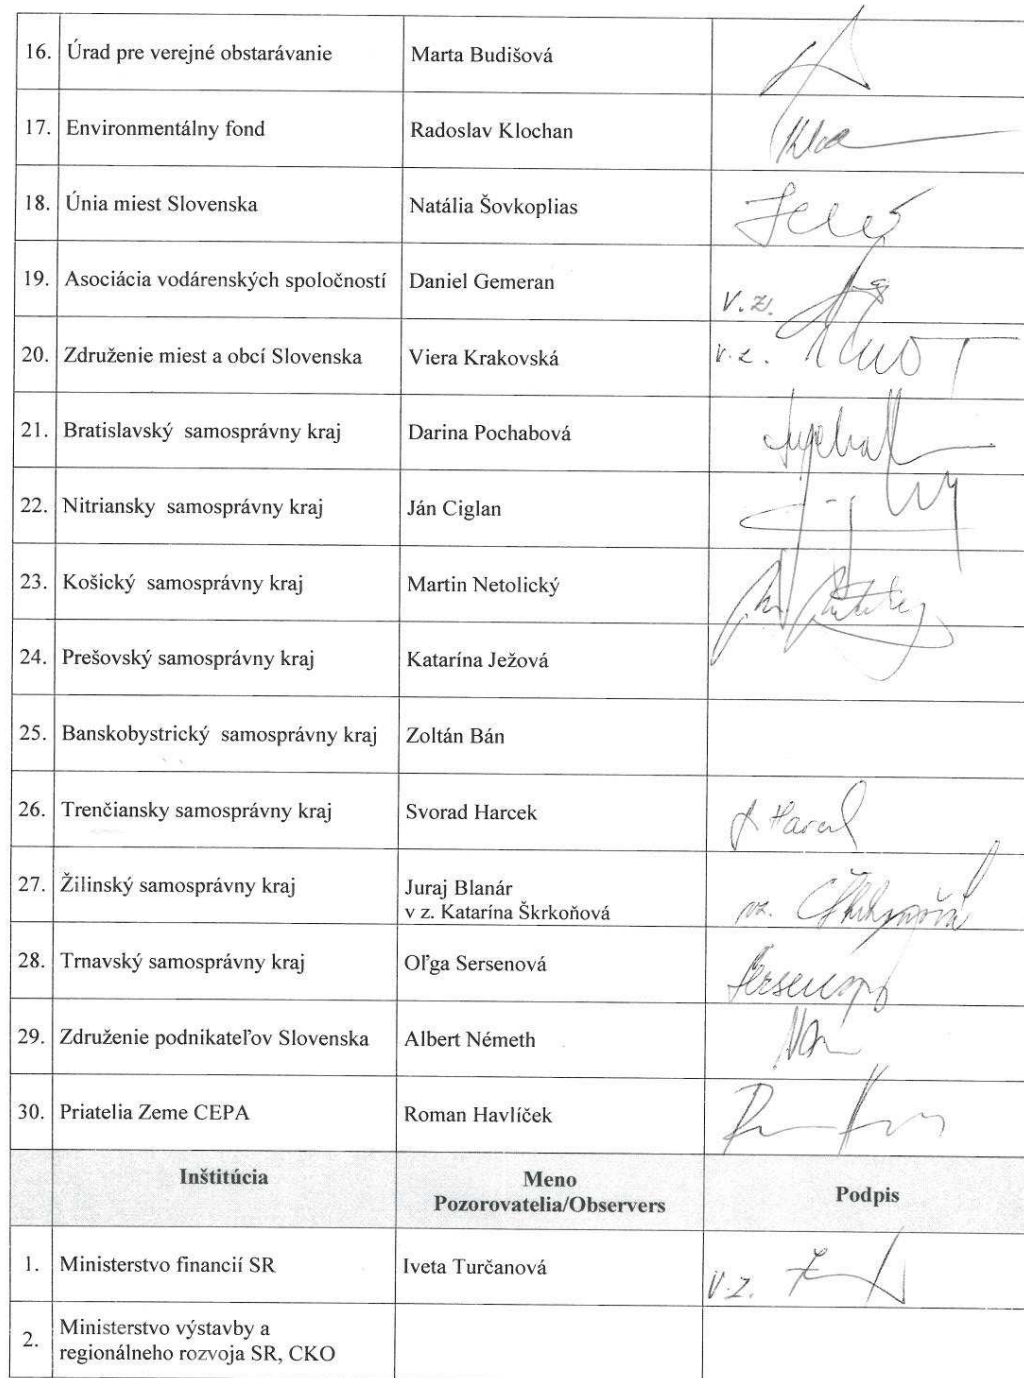 16. Úrad pre verejné obstarávanie Marta Budišová
17. Environmentálny fond Radoslav Klochan
18. Únia miest Slovenska Natália Šovkoplias
19. Asociácia vodárenských spoločností Daniel Gemeran V.Z.
20. Združenie miest a obcí Slovenska Viera Krakovská V.Z.
21. Bratislavský samosprávny kraj Darina Pochabová
22. Nitriansky samosprávny kraj Ján Ciglan
23. Košický samosprávny kraj Martin Netolický
24. Prešovský samosprávny kraj Katarína Ježová
25. Banskobystrický samosprávny kraj Zoltán Bán
26. Trenčiansky samosprávny kraj Svorad Harcek
27. Žilinský samosprávny kraj Juraj Blanár
v z. Katarína Škrkoňová vz.
28. Trnavský samosprávny kraj Oľga Sersenová
29. Združenie podnikateľov Slovenska Albert Németh
30. Priatelia Zeme CEPA Roman Havlíček
Inštitúcia Meno
Pozorovatelia/Observers Podpis
1. Ministerstvo financií SR Iveta Turčanová V.Z.
2. Ministerstvo výstavby a
regionálneho rozvoja SR, CKO